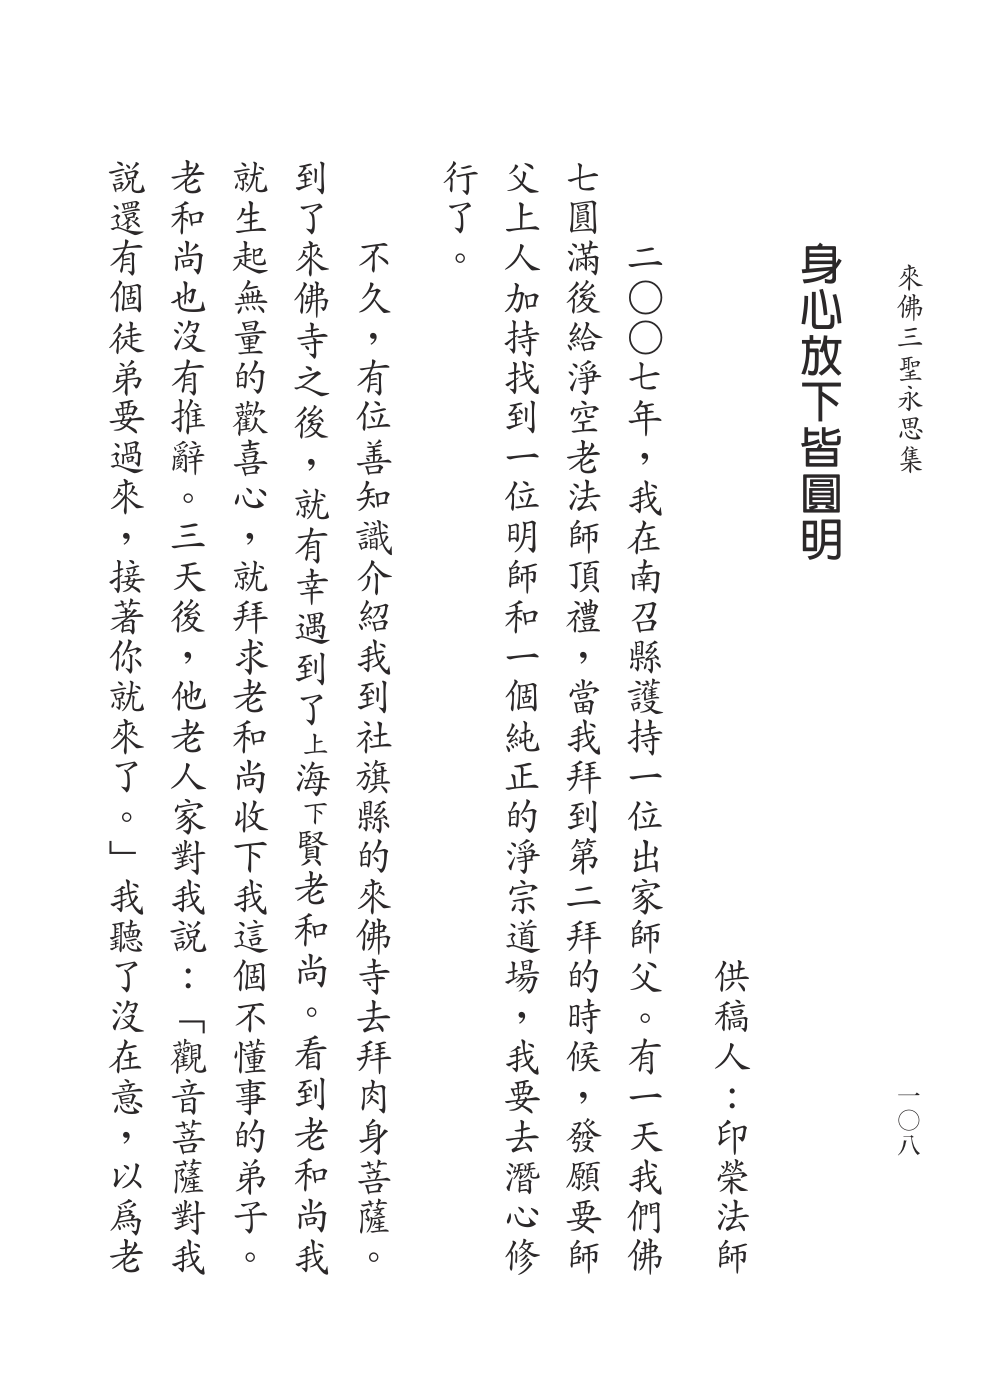 來佛三聖永思集
一〇八
身心放下皆圓明
供稿人：印榮法師
二〇〇七年，我在南召縣護持一位出家師父。有一天我們佛
七圓滿後給淨空老法師頂禮，當我拜到第二拜的時候，發願要師
父上人加持找到一位明師和一個純正的淨宗道場，我要去潛心修
行了。
不久，有位善知識介紹我到社旗縣的來佛寺去拜肉身菩薩。
到了來佛寺之後，就有幸遇到了上海下賢老和尚。看到老和尚我
就生起無量的歡喜心，就拜求老和尚收下我這個不懂事的弟子。
老和尚也沒有推辭。三天後，他老人家對我説：「觀音菩薩對我
説還有個徒弟要過來，接著你就來了。」我聽了沒在意，以爲老